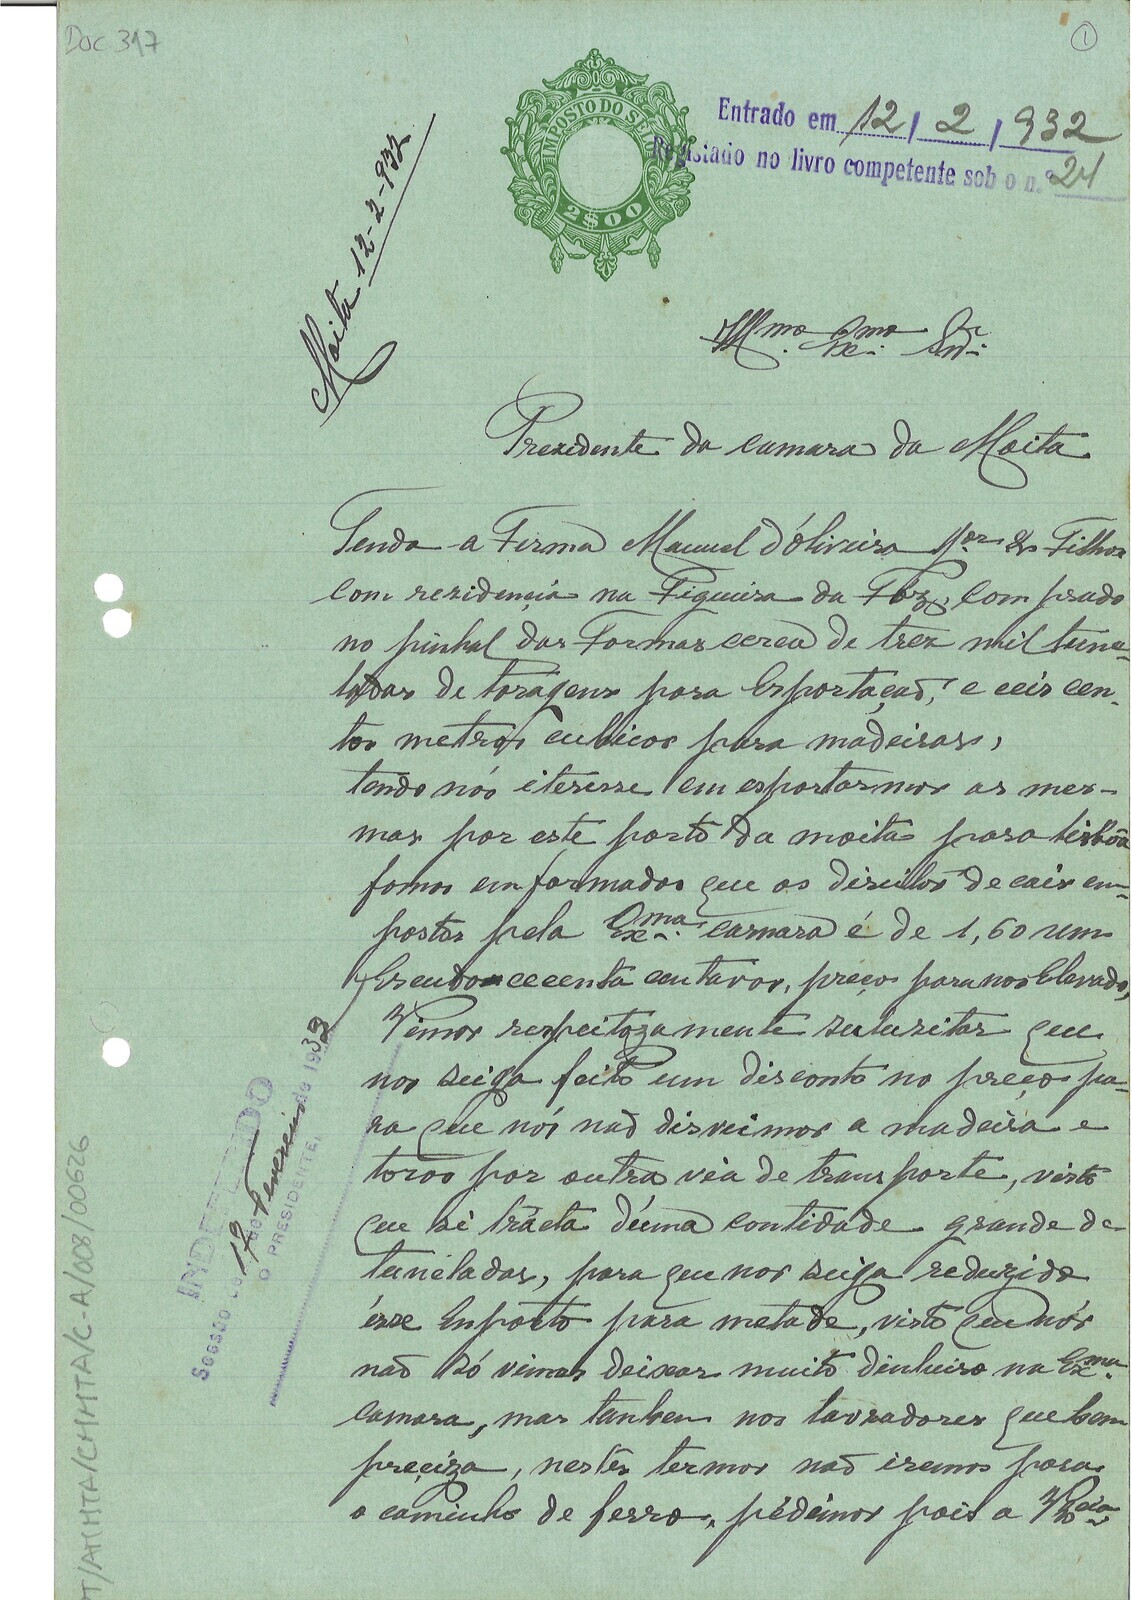 Doc 317
1
IMPOSTO DO SELO
2$00
Entrado em 12 / 2 / 932
Registado no livro competente sob o n.º 24
Moita 12-2-932
Illmo. Exmo. Snr.
Prezidente da camara da Moita
Tendo a Firma Manuel d'Óliveira Jor. & Filhos
com rezidençia na Figueira da Fóz, comprado
no pinhal das Formas cerca de trez mil tune-
ladas de toragens para Esportaçaõ, e ceis cen-
tos metros cubicos para madeiras,
tendo nós iteresse em esportarmos as mes-
mas por este porto da moita para lisbôa
fomos emformados que os direitos de cais em-
postos pela Exma. camara é de 1,60 um
Escudo cecenta centavos, preços para nos Elevado,
Vimos respeitozamente suluzitar que
nos seija feito um disconto no preço pa-
ra que nós naõ disveimos a madeira e
toros por outra via de transporte, visto
que se trácta d'uma contidade grande de
tuneladas, para que nos seija reduzido
ésse Enposto para metade, visto que nós
naõ só vimos deixar muito dinheiro na Exma.
camara, mas tanbem nos lavradores que bem
preçiza, nestes termos naõ iremos para
o caminho de ferro, pédimos pois a
INDEFERIDO
Sessão de 17 de Fevereiro de 1932
O PRESIDENTE,
PT/AMMTA/CMMTA/C-A/008/00626